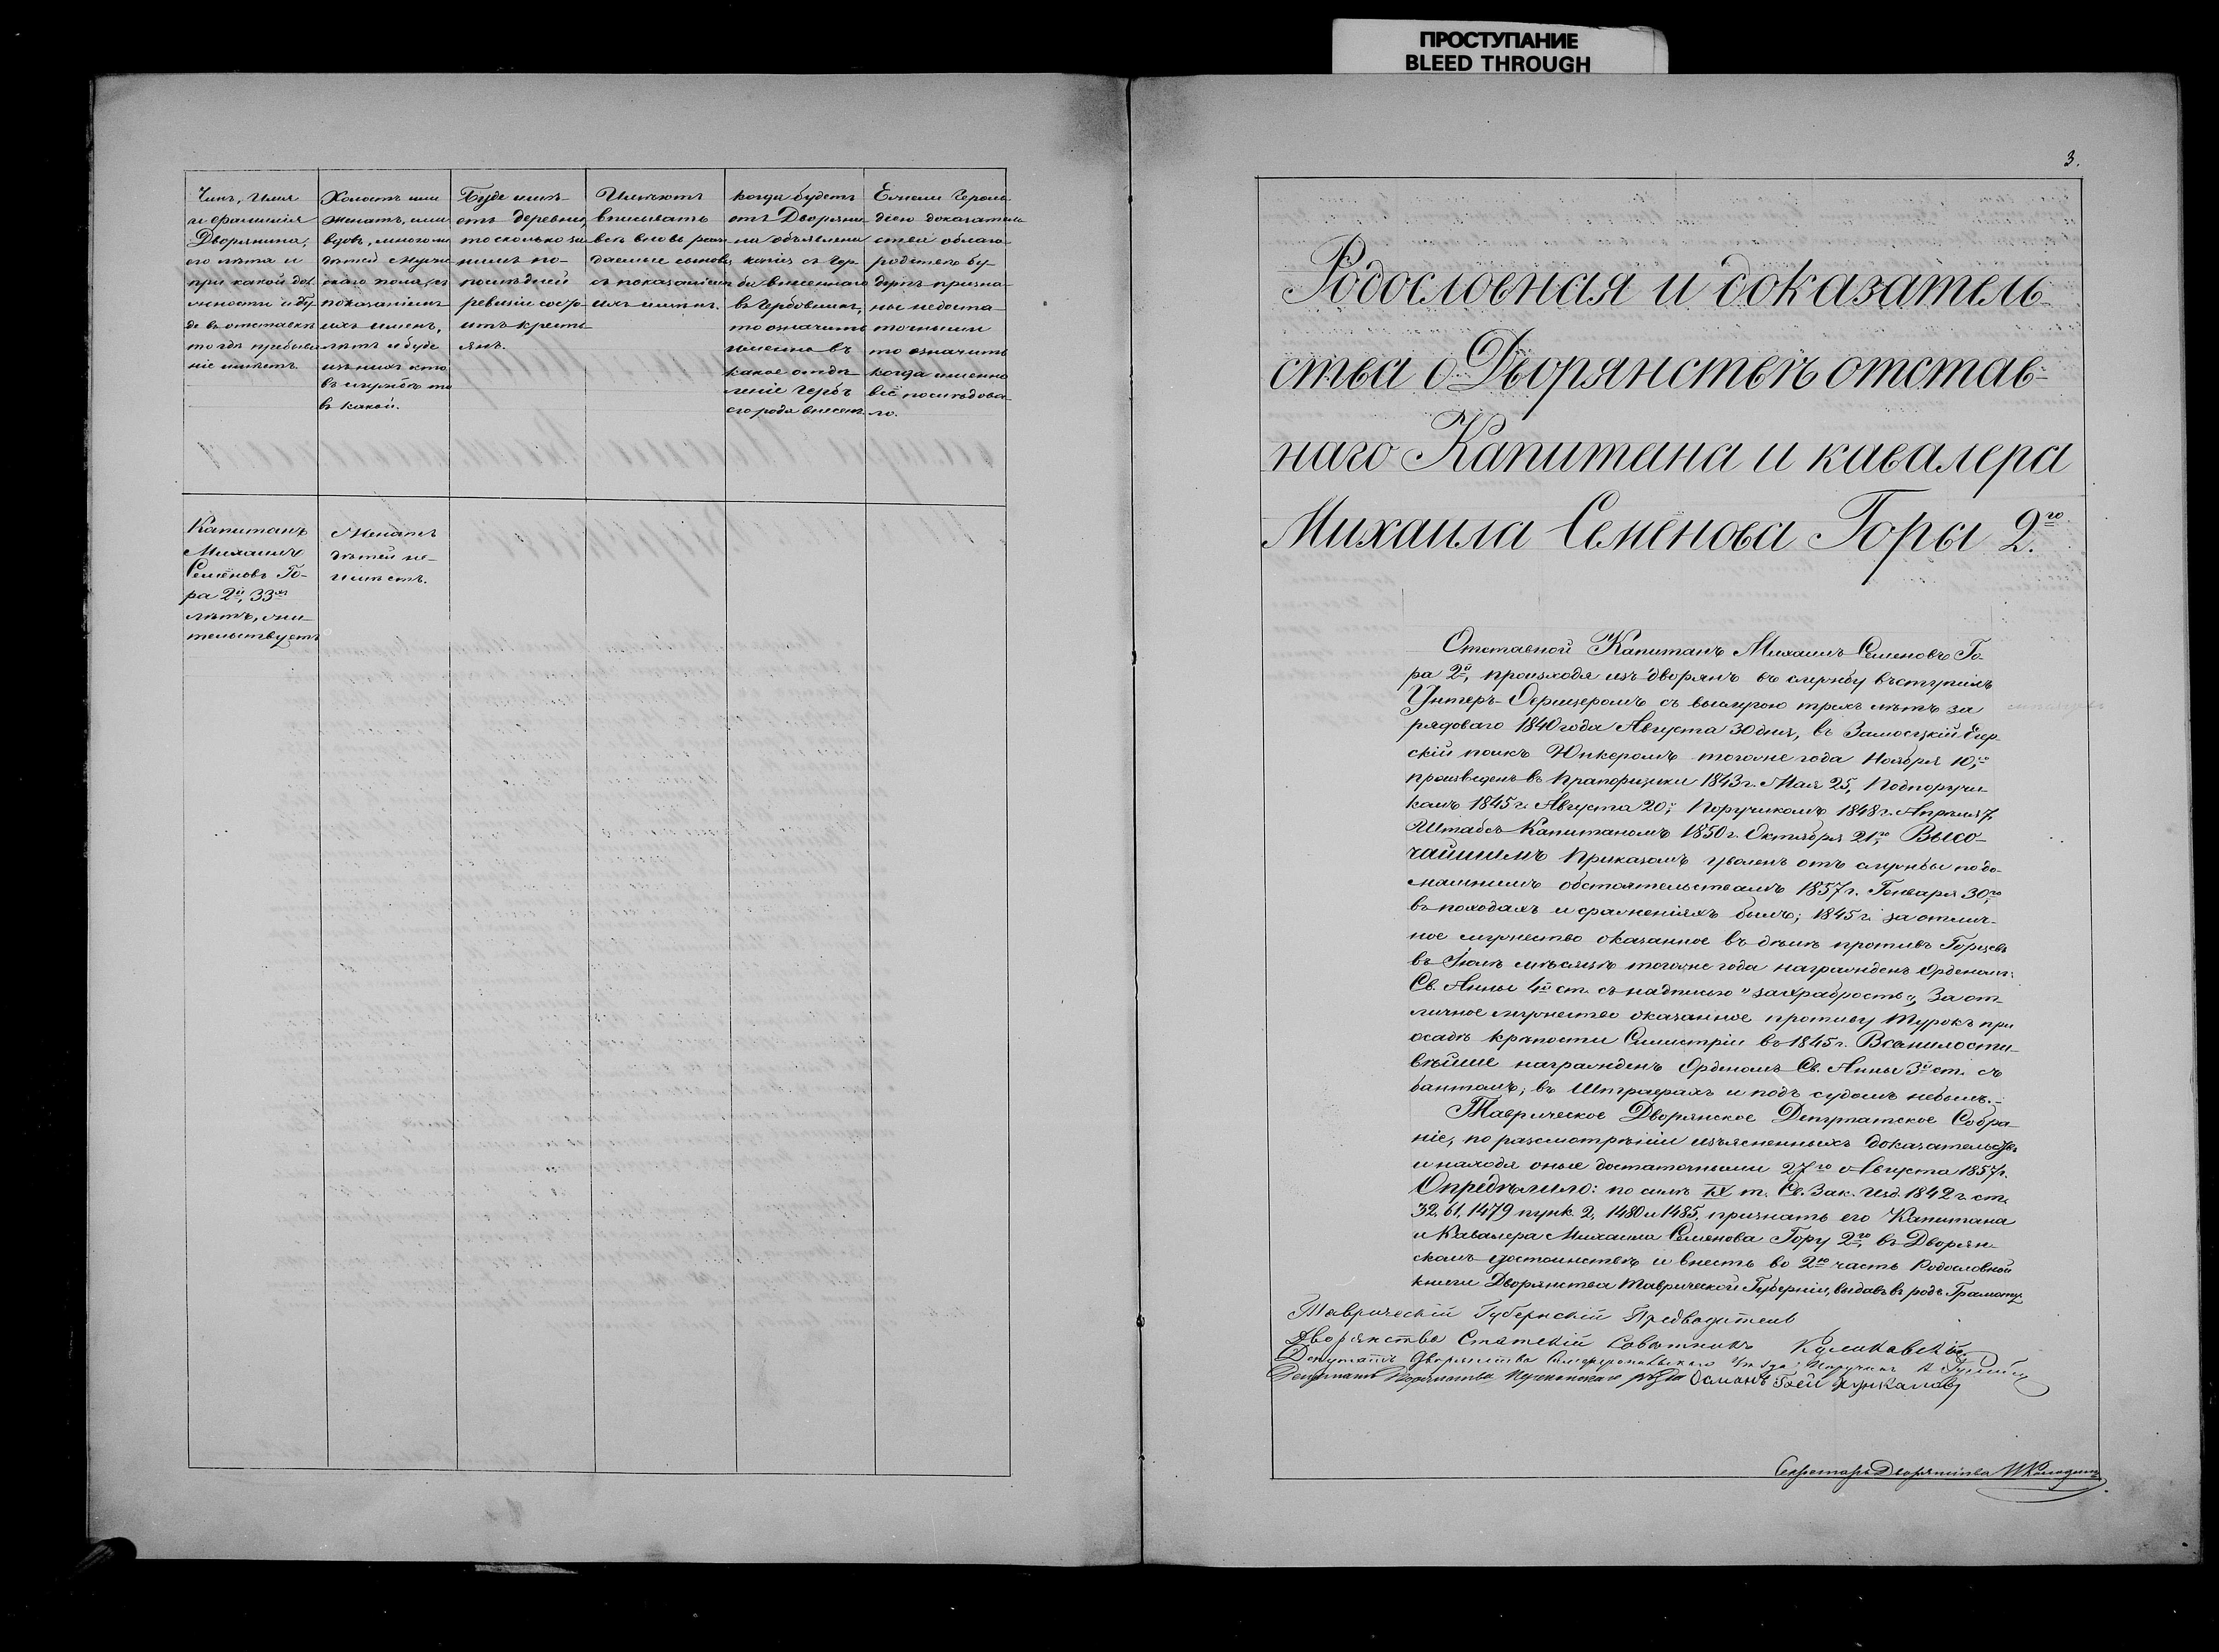 ПРОСТУПАНИЕ
BLEED THROUGH
Чинъ, Имя
и фамилія
Дворянина,
его лѣта и
при какой дол
жности и бу-
де въ отставкѣ
то гдѣ пребыва
ніе имѣетъ.
Холостъ или
женатъ, или
вдовъ, много ли
дѣтей мужс
каго пола, съ
показаніемъ
ихъ именъ,
лѣтъ и буде
изъ нихъ кто
въ службѣ то
въ какой.
Буде имѣ-
етъ деревни,
то сколько за
нимъ по-
послѣдней
ревизіи состо-
итъ кресть-
янъ.
Имѣютъ
вписывать
всѣ вновь рож
даемые сыновья
съ показаніемъ
ихъ имянъ.
Когда будетъ
отъ Дворяни-
на объявлена
копія съ гер-
ба внесеннаго
въ Гербовникъ,
то означить
именно въ
какое отдѣ
леніе Гербъ
его рода внесенъ.
Ежели Героль-
діею доказатель
ства облаго-
родствѣ бу-
дутъ призна-
ны недоста-
точными
то означить
когда именно
всё послѣдова-
ло.
Капитанъ
Михаилъ
Семёновъ Го-
ра 2й, 33хъ
лѣтъ, жи-
тельствуетъ
Женатъ
дѣтей не-
имѣетъ.
3.
Родословная и доказатель-
ства о Дворянствѣ отстав-
наго Капитана и кавалера
Михаила Семёнова Горы 2го.
Отставной Капитанъ Михаилъ Семеновъ Го-
ра 2й, происходя изъ дворянъ въ службу въступилъ
Унтеръ-Офицеромъ съ выслугою трехъ лѣтъ за
рядоваго 1840 года Августа 30 дня, въ Замосцкій Егер-
скій полкъ Юнкеромъ тогоже года Ноября 10го,
произведенъ въ Прапорщики 1843 г. Мая 25, Подпоручи-
комъ 1845 г. Августа 20, Поручикомъ 1848 г. Апрѣля 7,
Штабсъ-Капитаномъ 1850 г. Октября 21го, Высо-
чайшимъ Приказомъ уволенъ отъ службы по до-
машнимъ обстоятельствамъ 1857 г. Генваря 30го,
въ походахъ и сраженіяхъ былъ; 1845 г. за отлич-
ное мужество оказанное въ дѣлѣ противъ Горцевъ
въ Іюлѣ мѣсяцѣ тогоже года награжденъ Орденомъ
Св. Анны 4й ст. съ надписью "захрабрость", За от-
личное мужество оказанное противу Турокъ при
осадѣ крѣпости Силистріи въ 1845 г. Всемилости-
вѣйше награжденъ Орденомъ Св. Анны 3й ст. съ
бантомъ; въ Штрафахъ и подъ судомъ небылъ.-
Таврическое Дворянское Депутатское Собра-
ніе, по разсмотрѣніи изъясненныхъ доказательствъ
и находя оные достаточными 27го Августа 1857 г.
Опредѣлило: по силѣ IX т. Св. Зак. Изд. 1842 г. ст.
32, 61, 1479 пунк. 2, 1480 и 1485, признать его Капитана
и Кавалера Михаила Семёнова Гору 2го въ Дворян-
скомъ достоинствѣ и внесть во 2ю часть Родословной
книги Дворянства Таврической Губерніи, выдавъ въ родъ Грамоту.
Таврическій Губернскій Предводитель
Дворянства Статскій Совѣтникъ
Депутатъ Дворянства Симферопольскаго Уѣзда Поручикъ
Депутатъ Дворянства Османъ Бей
Секретарь Дворянства